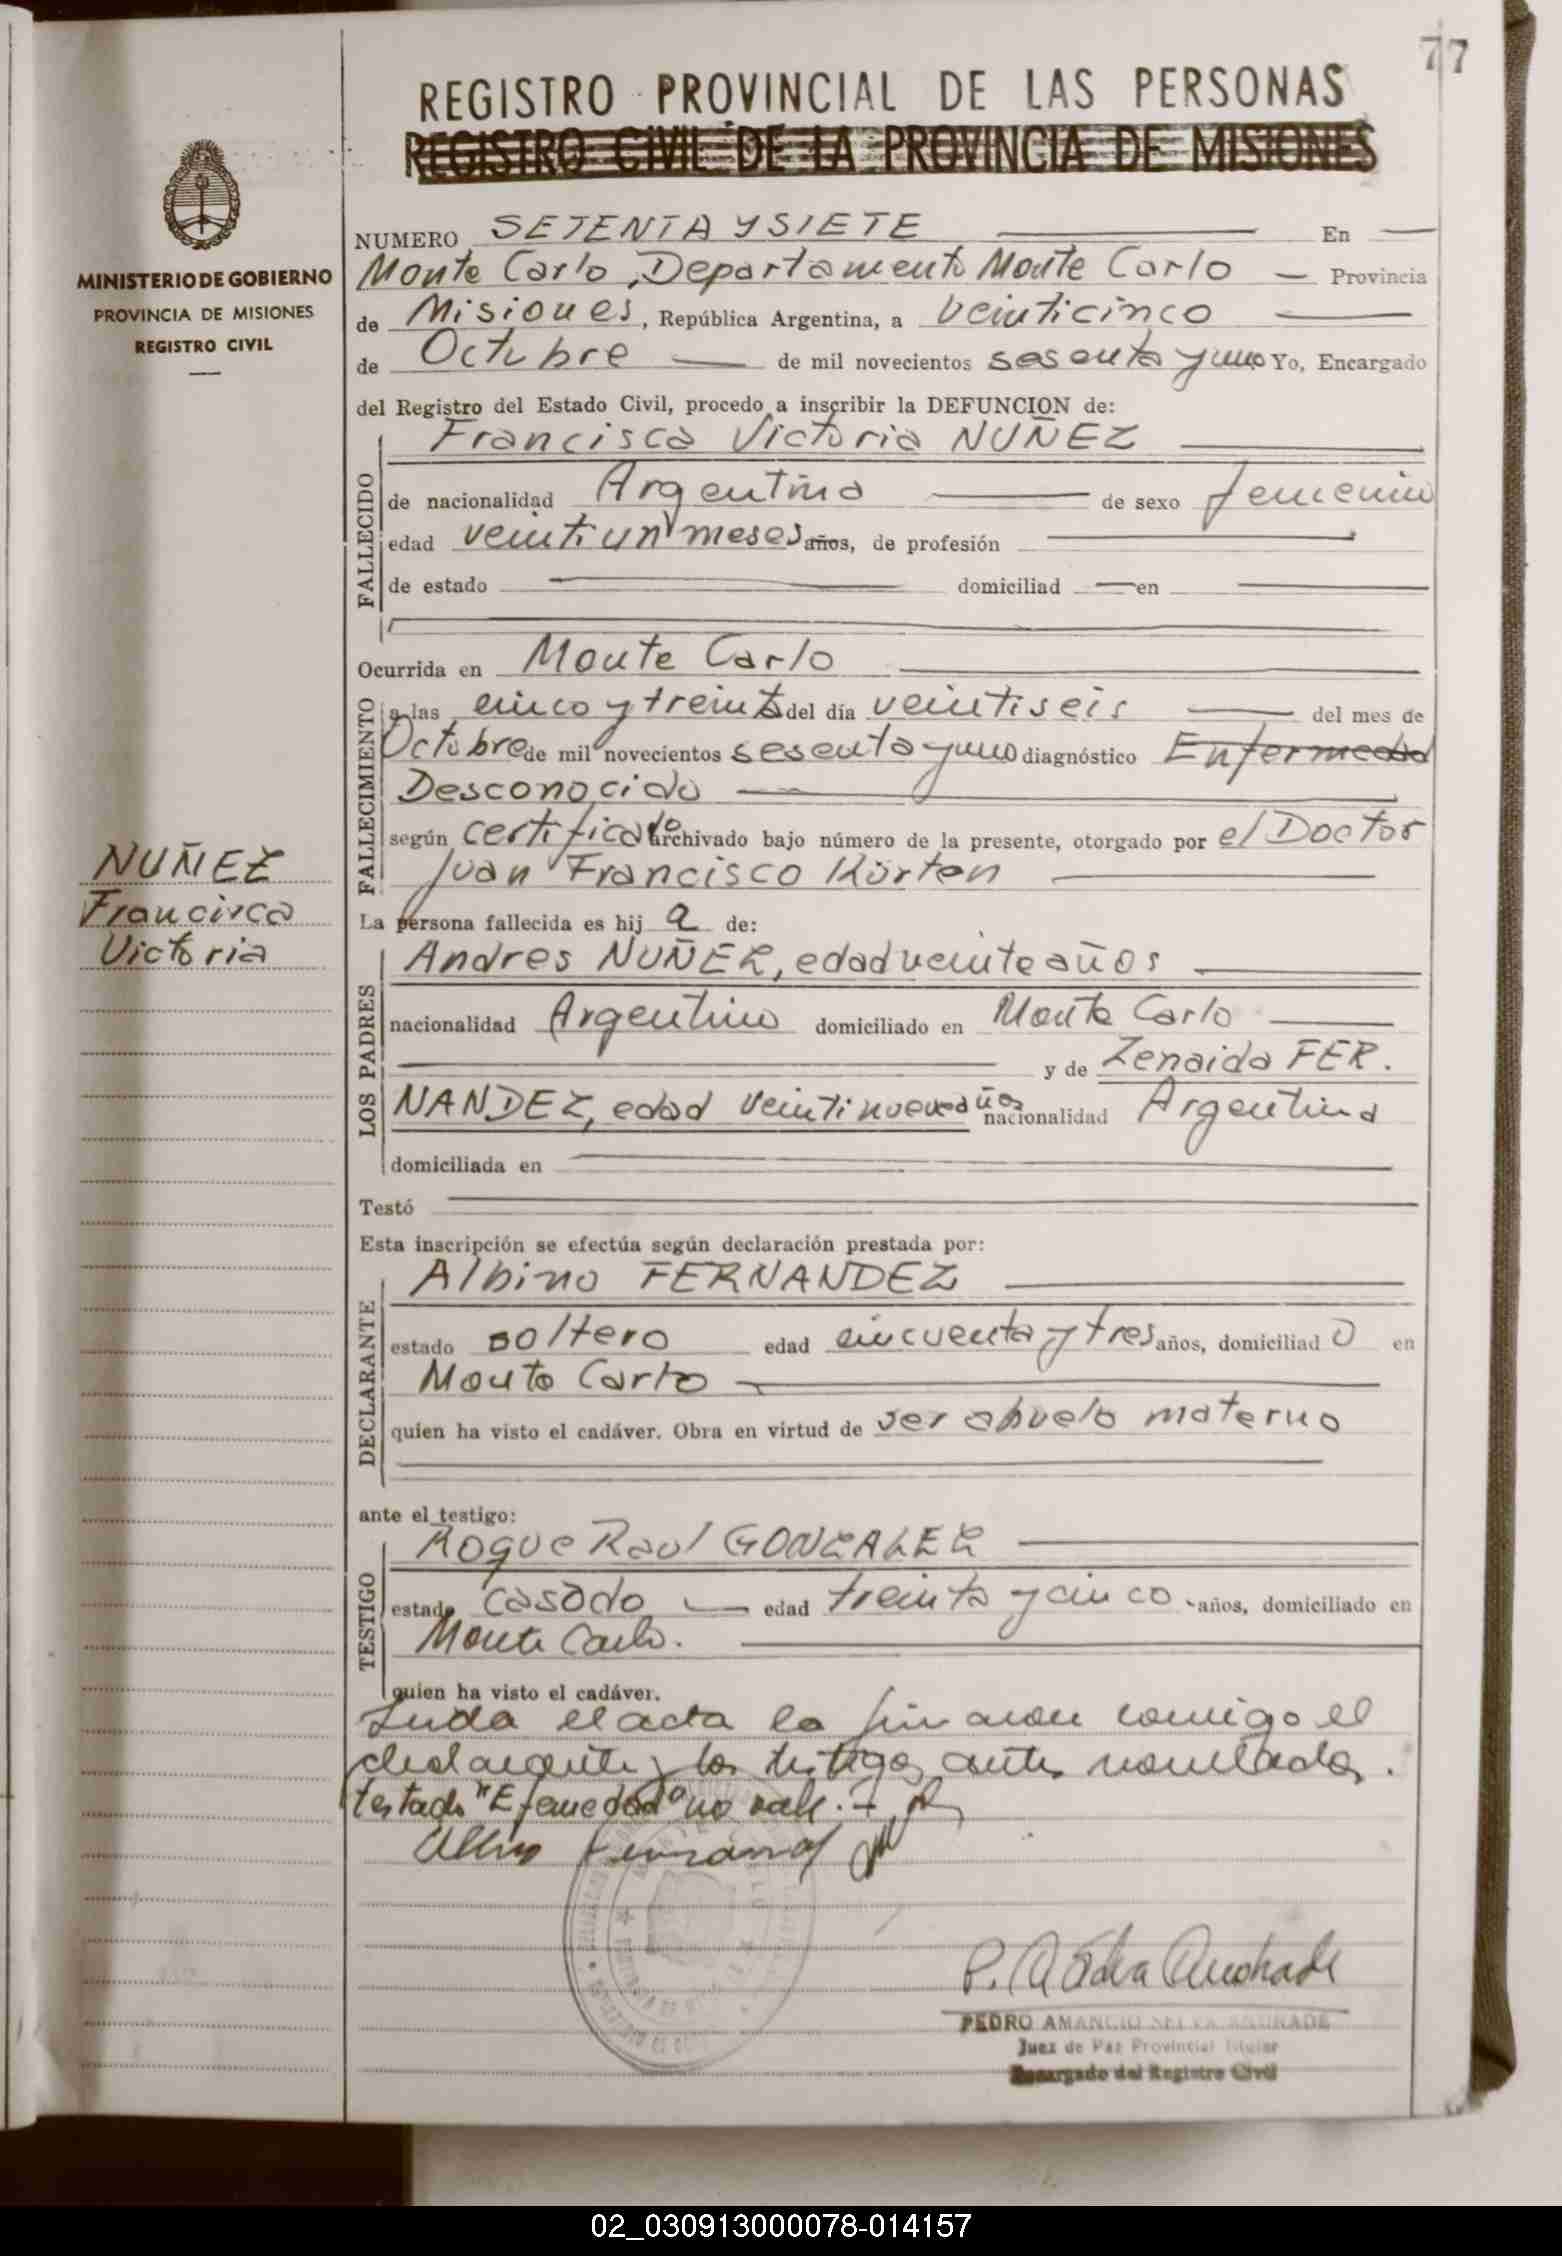 77
REGISTRO PROVINCIAL DE LAS PERSONAS
REGISTRO CIVIL DE LA PROVINCIA DE MISIONES
MINISTERIO DE GOBIERNO
PROVINCIA DE MISIONES
REGISTRO CIVIL
NUMERO SETENTA Y SIETE En
Monte Carlo, Departamento Monte Carlo Provincia
de Misiones, República Argentina, a veinticinco
de Octubre de mil novecientos sesenta y uno Yo, Encargado
del Registro del Estado Civil, procedo a inscribir la DEFUNCION de:
FALLECIDO
Francisca Victoria NUÑEZ
de nacionalidad Argentina de sexo femenino
edad veintiun meses años, de profesión
de estado domiciliad en
Ocurrida en Monte Carlo
FALLECIMIENTO
a las cinco y treinta del día veintiseis del mes de
Octubre de mil novecientos sesenta y uno diagnóstico Enfermedad
Desconocido
según certificado archivado bajo número de la presente, otorgado por el Doctor
Juan Francisco Körten
NUÑEZ
Francisca
Victoria
La persona fallecida es hij a de:
LOS PADRES
Andres NUÑEZ, edad veinte años
nacionalidad Argentino domiciliado en Monte Carlo
y de Zenaida FER.
NANDEZ, edad veintinueve años nacionalidad Argentina
domiciliada en
Testó
Esta inscripción se efectúa según declaración prestada por:
DECLARANTE
Albino FERNANDEZ
estado soltero edad cincuenta y tres años, domiciliad o en
Monte Carlo
quien ha visto el cadáver. Obra en virtud de ser abuelo materno
ante el testigo:
TESTIGO
Roque Raul GONZALEZ
estado casado edad treinta y cinco años, domiciliado en
Monte Carlo.
quien ha visto el cadáver.
Leida el acta la firmaron conmigo el
declarante y los testigos antes nombrados.
testado "Efemedad" no vale.
P. A Selva Andrade
PEDRO AMANCIO SELVA ANDRADE
Juez de Paz Provincial Titular
Encargado del Registro Civil
02_030913000078-014157